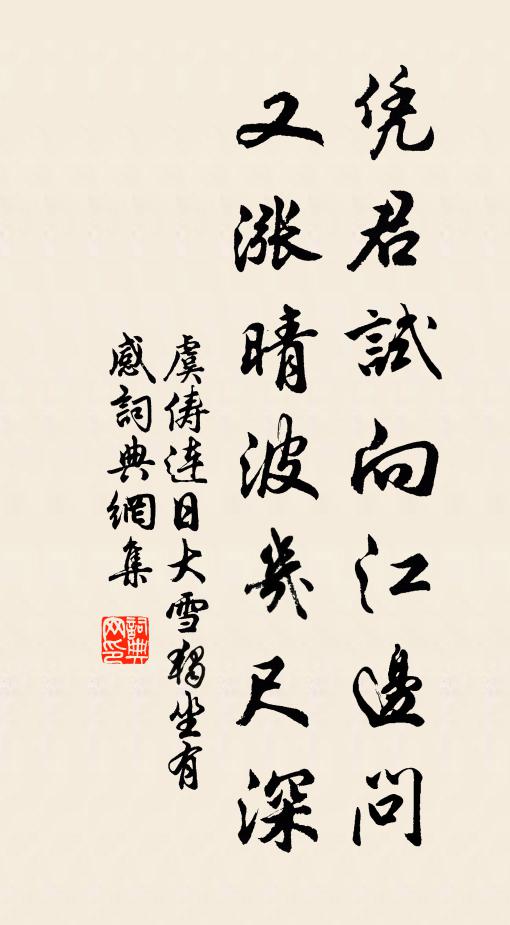 凭君試向江邊問
又漲晴波幾尺深
虞儔連日大雪獨坐有
感詞典網集
詞典
网印